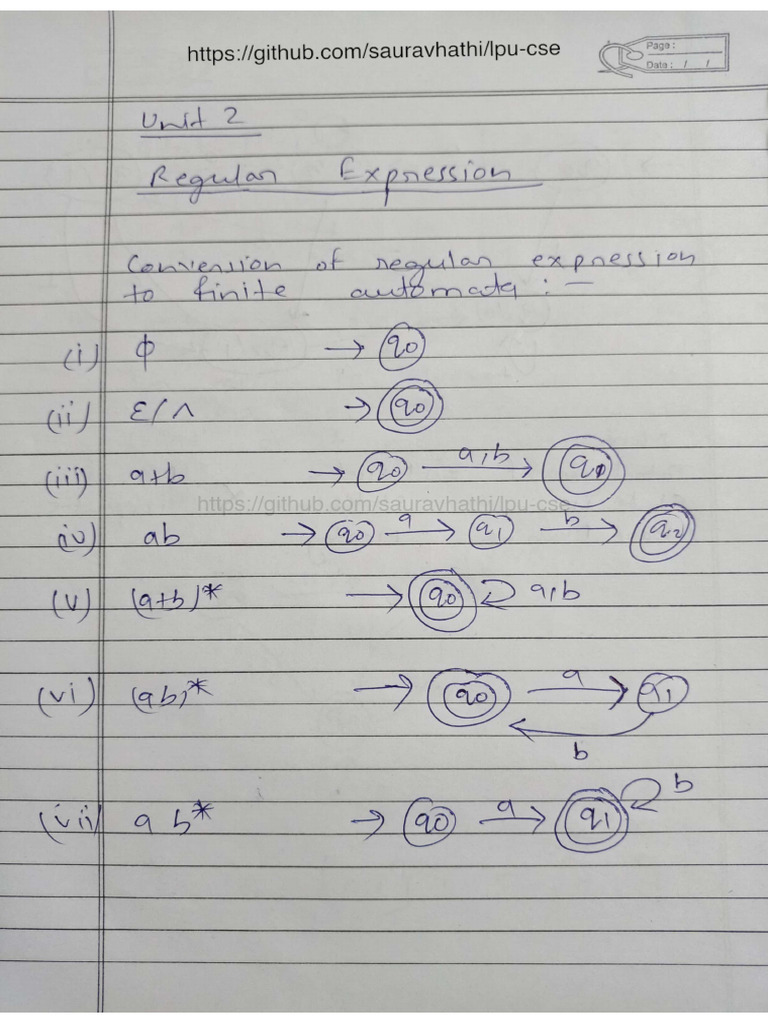 https://github.com/sauravhathi/lpu-cse
Page :
Date : / /
Unit 2
Regular Expression
Conversion of regular expression
to finite automata : —
(i) ϕ → q0
(ii) ε/^ → q0
(iii) a+b → q0 a,b q1
https://github.com/sauravhathi/lpu-cse
(iv) ab → q0 a q1 b q2
(v) (a+b)* → q0 a,b
(vi) (ab)* → q0 a q1
b
(vii) a b* → q0 a q1 b